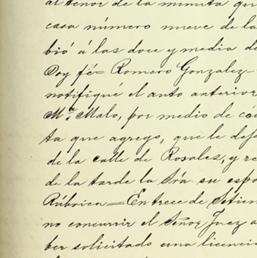 al tenor de la minuta que
casa número nueve de la
bió á las doce y media de
Doy fé= Romero Gonzalez
notifiqué el auto anterior
M.ª Malo, por medio de
ta que agrego, que le dejé
de la calle de Rosales, y re
de la tarde la Sra. su espo
Rúbrica= En trece de
no concurrir el Señor Juez á
ber solicitado una licencia